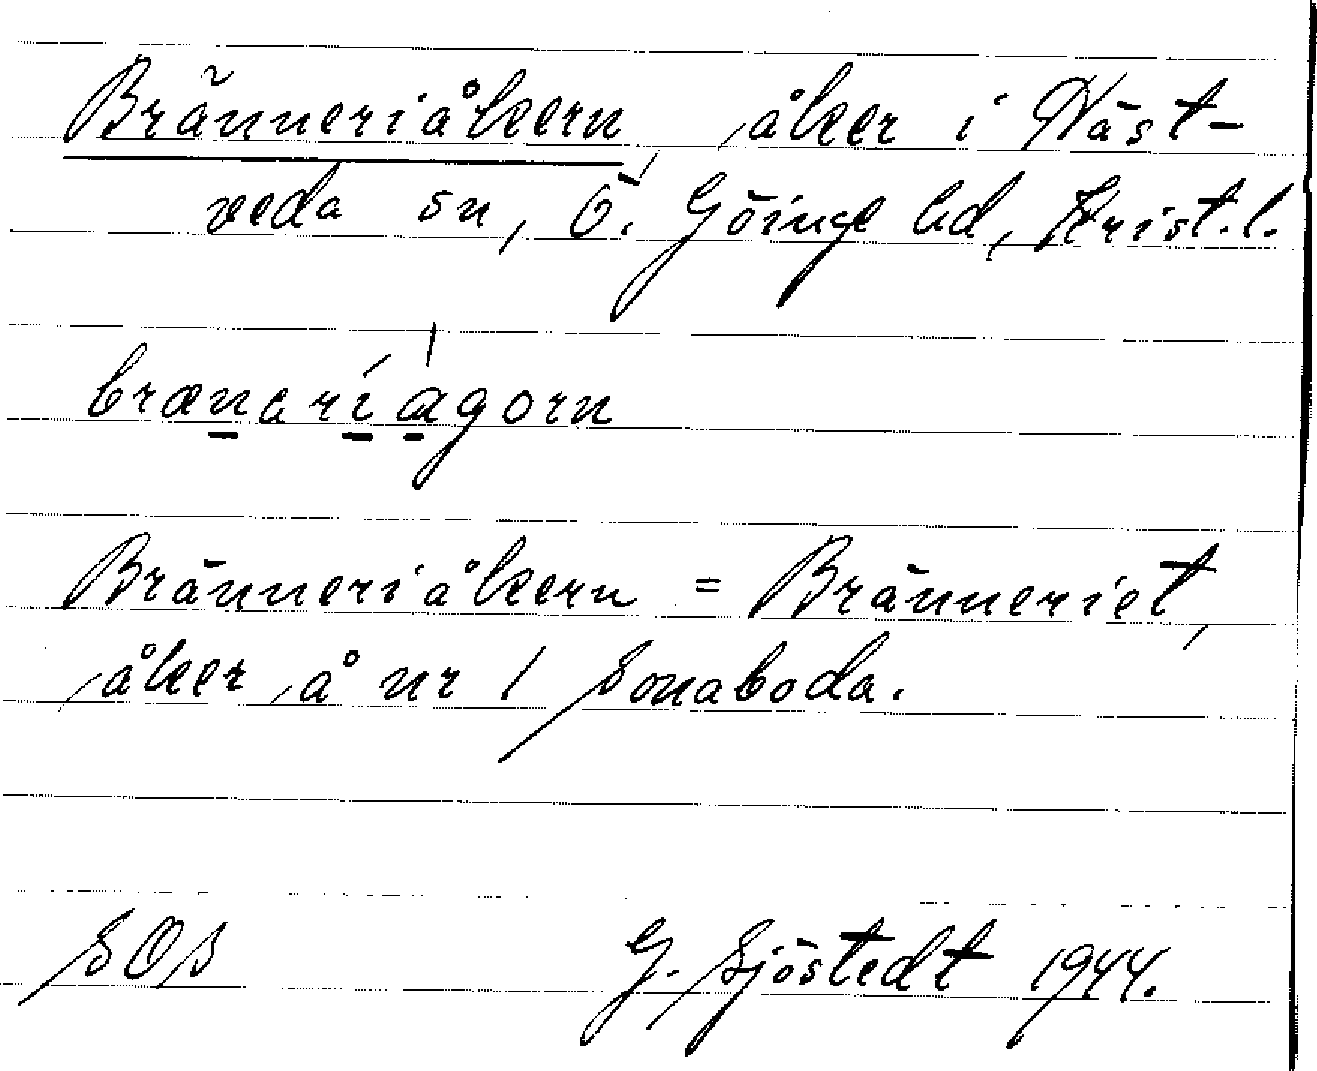 Bränneriåkern, åker i Näst-
veda sn, Ö. Göinge hd, Krist.l.
brænəríágorn
Bränneriåkern = Bränneriet,
åker å nr 1 Sonaboda.
SOS
G. Sjöstedt 1944.